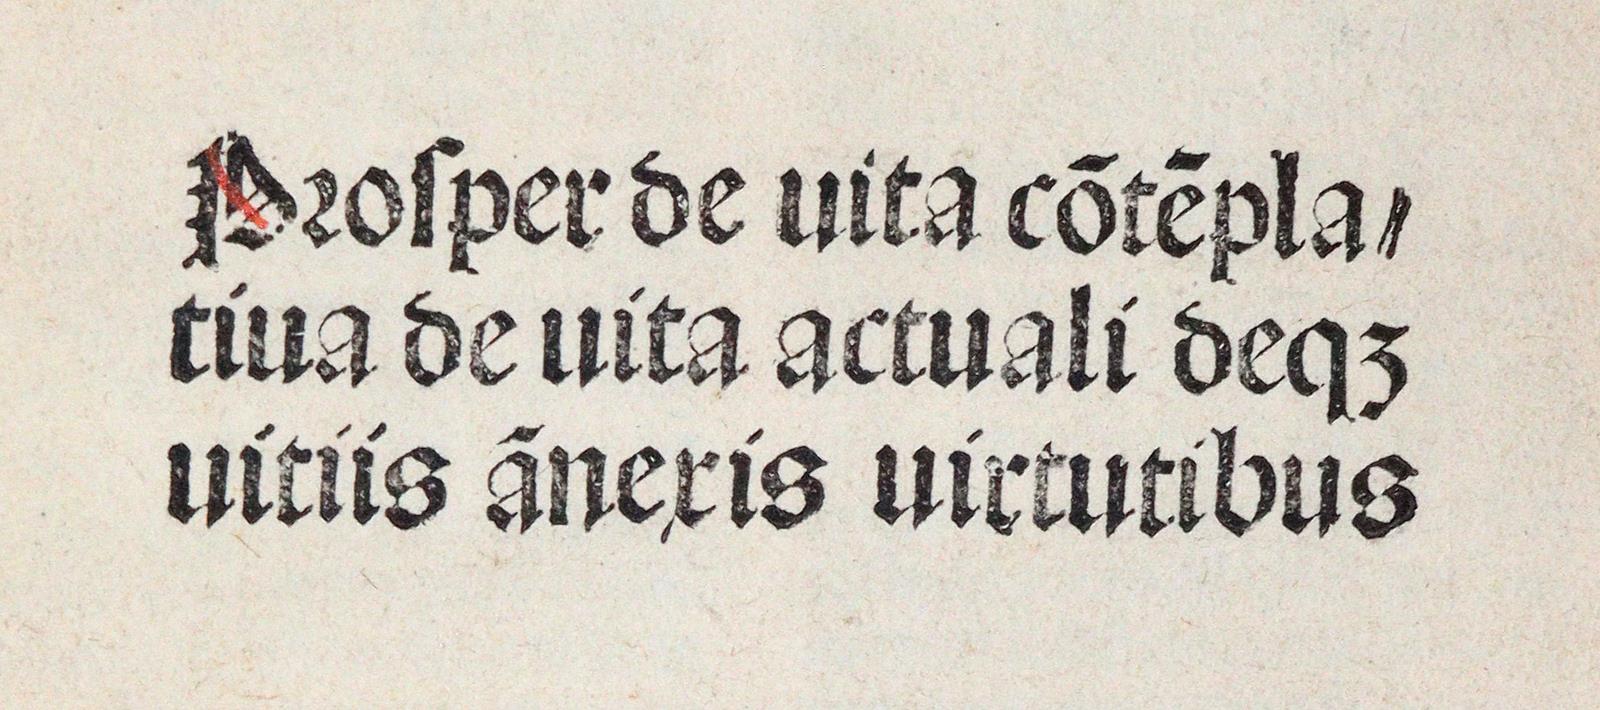 Proſper de uita cōtēpla⸗
tiua de uita actuali deqꝫ
uitiis ānexis uirtutibus